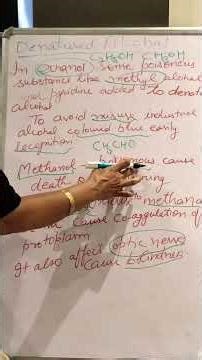 Denatured Alcohol
C₂H₅OH CH₃OH
In ethanol some poisonous
substance like methyl alcohol
pyridine added to denate
alcohol
To avoid misuse industrial
alcohol coloured blue easily
CH₃CHO
Methanol → cause
death
methana
cause Co-aggulation of
protoplasm
It also affect optic nerve
Cause blindness.